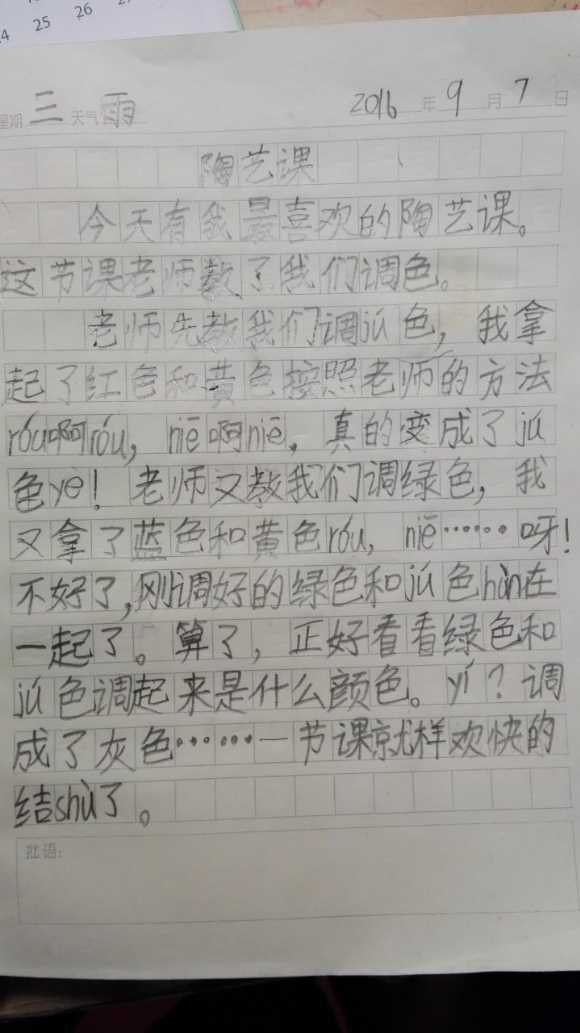 24 25 26
星期 三 天气 雨 2016 年 9 月 7 日
陶艺课
今天有我最喜欢的陶艺课。
这节课老师教了我们调色。
老师先教我们调jú色，我拿
起了红色和黄色按照老师的方法
róu啊róu，niē啊niē，真的变成了jú
色yè！老师又教我们调绿色，我
又拿了蓝色和黄色róu，niē……呀！
不好了，刚调好的绿色和jú色hùn在
一起了。算了，正好看看绿色和
jú色调起来是什么颜色。yí？调
成了灰色……一节课就样欢快的
结shù了。
批语：